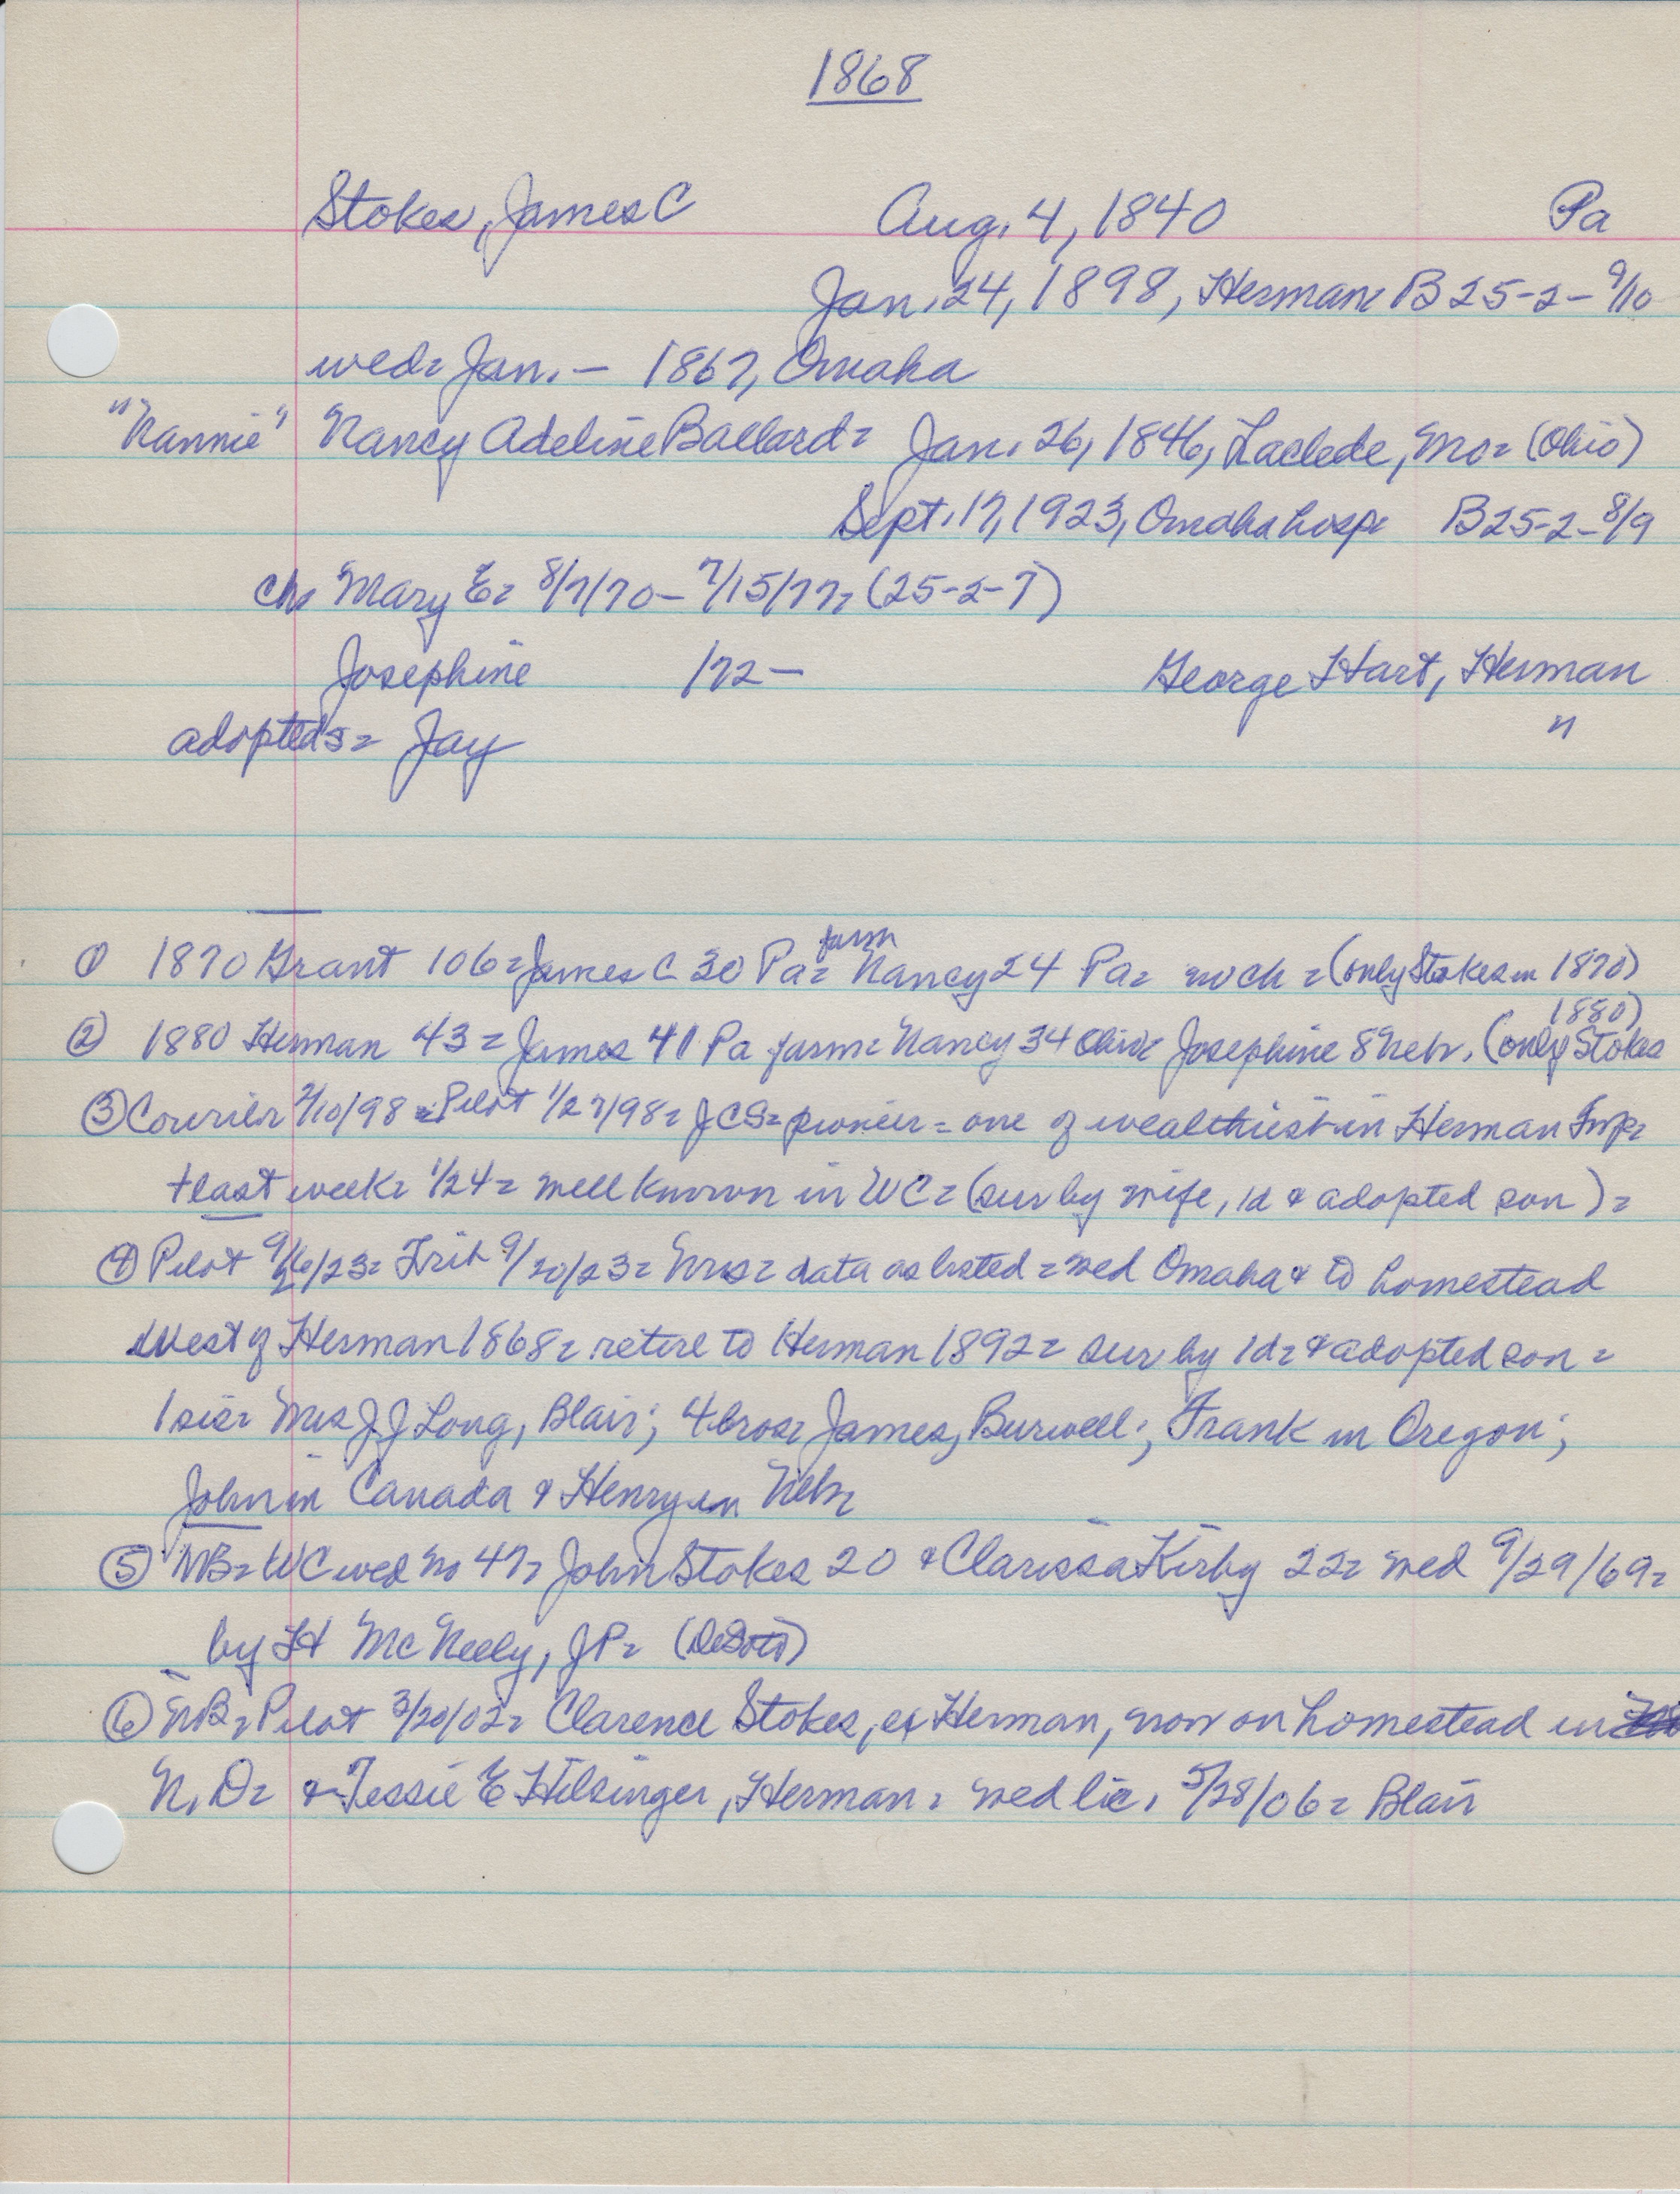 1868
Stokes, James C Aug. 4, 1840 Pa
Jan. 24, 1898, Herman= B 25-2-9/10
wed= Jan. — 1867, Omaha
"Nannie" Nancy Adeline Ballard= Jan. 26, 1846, Laclede, Mo= (Ohio)
Sept. 17, 1923, Omaha hosp= B25-2-8/9
ch= Mary E= 8/7/70 - 7/15/77= (25-2-7)
Josephine /72— George Hart, Herman
adopted s= Jay "
① 1870 Grant 106= James C 30 Pa= farm Nancy 24 Pa= no ch = (only Stokes in 1870)
② 1880 Herman 43= James 41 Pa farm= Nancy 34 Ohio= Josephine 8 Nebr. (only Stokes 1880)
③ Courier 2/10/98 = Pilot 1/27/98= JCS= pioneer = one of wealthiest in Herman Twp=
+ last week= 1/24= well known in WC= (sur by wife, 1d & adopted son) =
④ Pilot 9/26/23= Trib 9/20/23= Mrs= data as listed = wed Omaha & to homestead
West of Herman 1868= retire to Herman 1892= sur by 1d= & adopted son =
1 sis= Mrs J J Long, Blair; 4 bros= James, Burwell; Frank in Oregon;
John in Canada & Henry in Neb=
⑤ NB= WC wed no 47= John Stokes 20 & Clarissa Kirby 22= wed 9/29/69=
by H McNeely, JP= (DeSoto)
⑥ NB= Pilot 3/20/02= Clarence Stokes, ex Herman, now on homestead in
N.D= & Tessie E Hilsinger, Herman= wed lic. 5/28/06= Blair